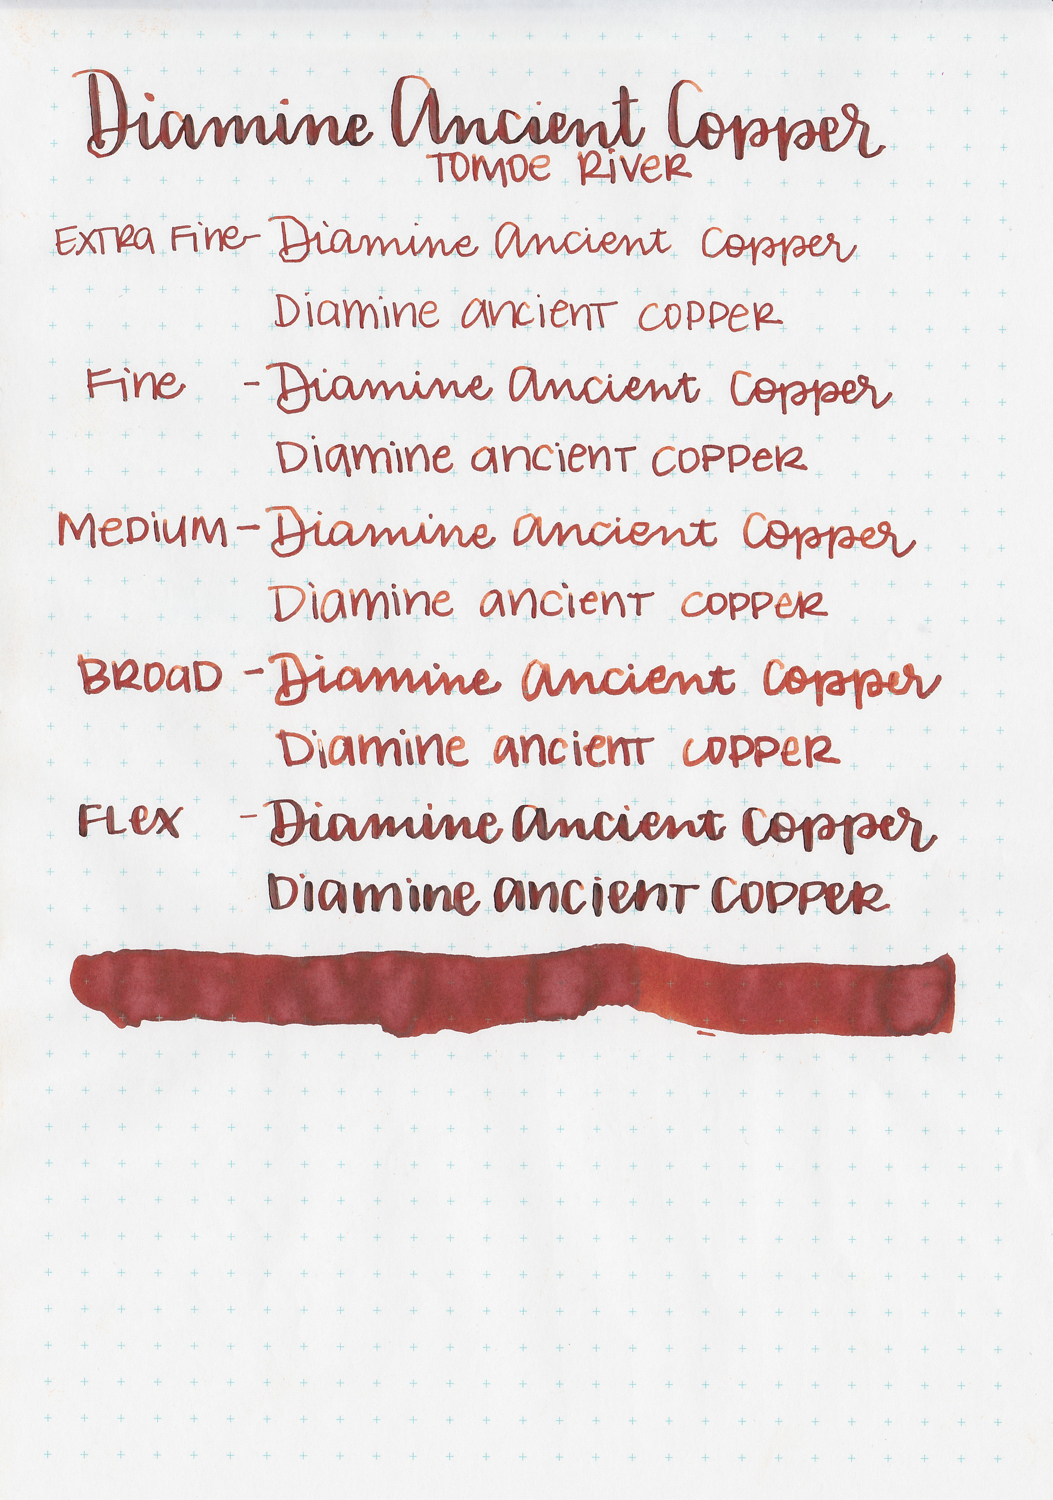 Diamine Ancient Copper
TOMOE RiVER
EXTRa Fine - Diamine Ancient Copper
Diamine ancient COPPER
Fine - Diamine Ancient Copper
Diamine ancient COPPER
MeDiUM - Diamine Ancient Copper
Diamine ancient COPPER
BROaD - Diamine Ancient Copper
Diamine ancient COPPER
FLex - Diamine Ancient Copper
Diamine ancient COPPER